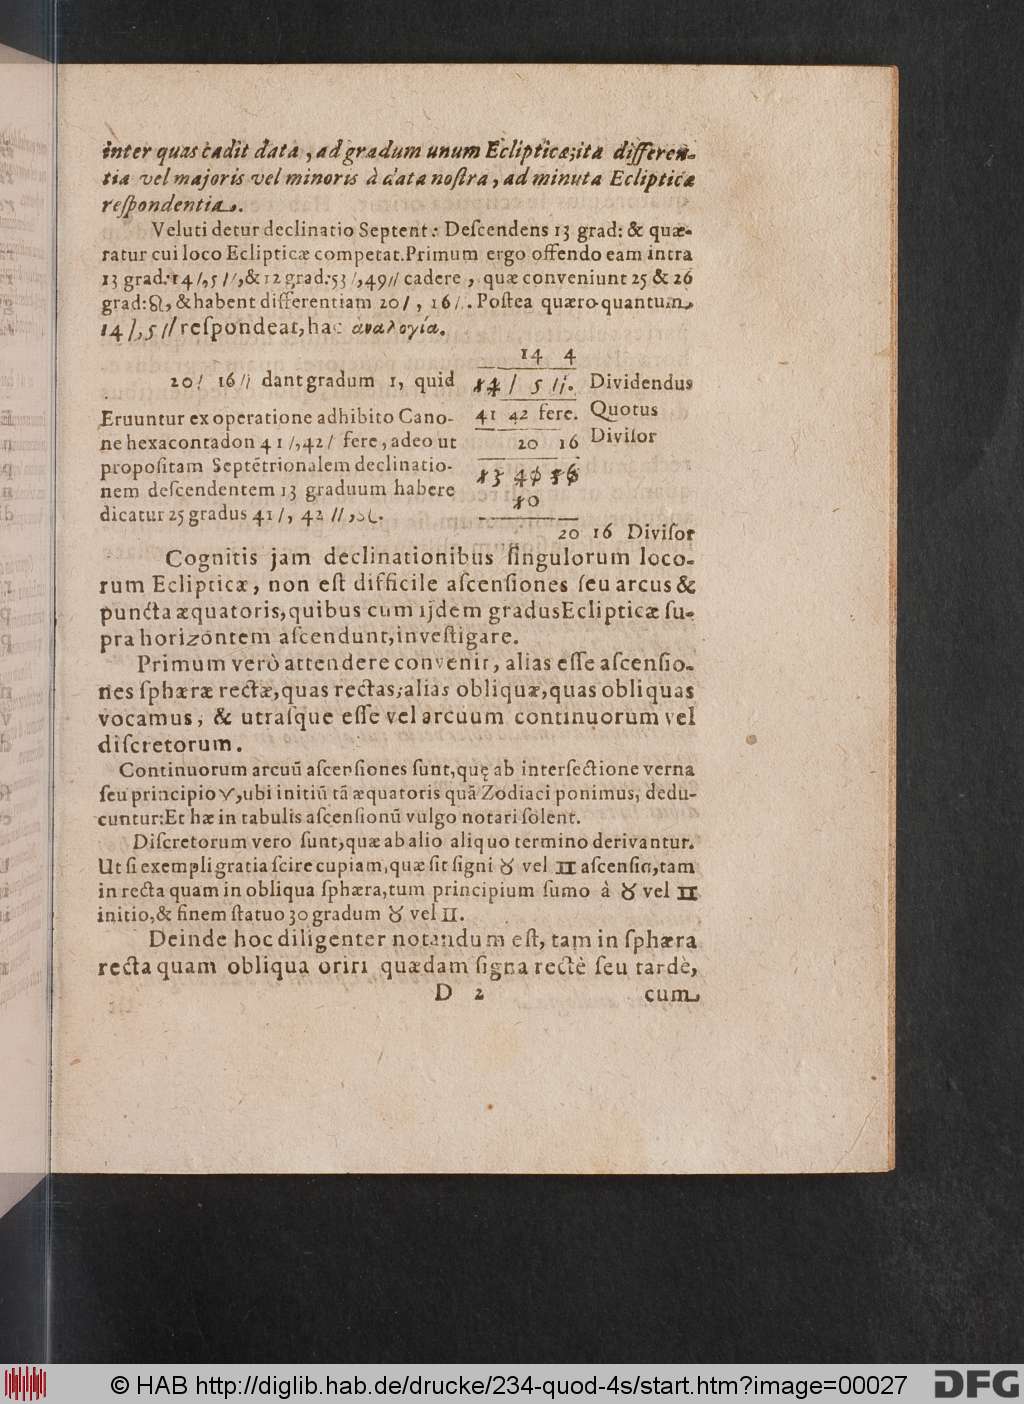 inter quas cadit data, ad gradum unum Eclipticæ; ita differen-
tia vel majoris vel minoris à data nostra, ad minuta Ecliptica
reſpondentia.
Veluti detur declinatio Septent: Deſcendens 13 grad: & quæ-
ratur cui loco Eclipticæ competat. Primum ergo offendo eam intra
13 grad: 14/, 5//, & 12 grad: 53/, 49// cadere, quæ conveniunt 25 & 26
grad: ♌, & habent differentiam 20/, 16//. Poſtea quæro quantum
14/, 5// reſpondeat, hac ἀναλογία.
14 4
20/ 16// dant gradum 1, quid 14/ 5//. Dividendus
Eruuntur ex operatione adhibito Cano- 41 42 fere. Quotus
ne hexacontadon 41/, 42/ fere, adeo ut 20 16 Diviſor
propoſitam Septētrionalem declinatio- 13 40 16
nem deſcendentem 13 graduum habere 10
dicatur 25 gradus 41/, 42//, ♌.
20 16 Diviſor
Cognitis jam declinationibus ſingulorum loco-
rum Eclipticæ, non eſt difficile aſcenſiones ſeu arcus &
puncta æquatoris, quibus cum ijdem gradus Eclipticæ ſu-
pra horizontem aſcendunt, inveſtigare.
Primum verò attendere convenit, alias eſſe aſcenſio-
nes ſphæræ rectæ, quas rectas; alias obliquæ, quas obliquas
vocamus, & utraſque eſſe vel arcuum continuorum vel
diſcretorum.
Continuorum arcuū aſcenſiones ſunt, quę ab interſectione verna
ſeu principio ♈, ubi initiū tā æquatoris quā Zodiaci ponimus, dedu-
cuntur: Et hæ in tabulis aſcenſionū vulgo notari ſolent.
Diſcretorum vero ſunt, quæ ab alio aliquo termino derivantur.
Ut ſi exempli gratia ſcire cupiam, quæ ſit ſigni ♉ vel ♊ aſcenſio, tam
in recta quam in obliqua ſphæra, tum principium ſumo à ♉ vel ♊
initio, & finem ſtatuo 30 gradum ♉ vel ♊.
Deinde hoc diligenter notandum eſt, tam in ſphæra
recta quam obliqua oriri quædam ſigna rectè ſeu tardè,
D 2 cum
© HAB http://diglib.hab.de/drucke/234-quod-4s/start.htm?image=00027 DFG